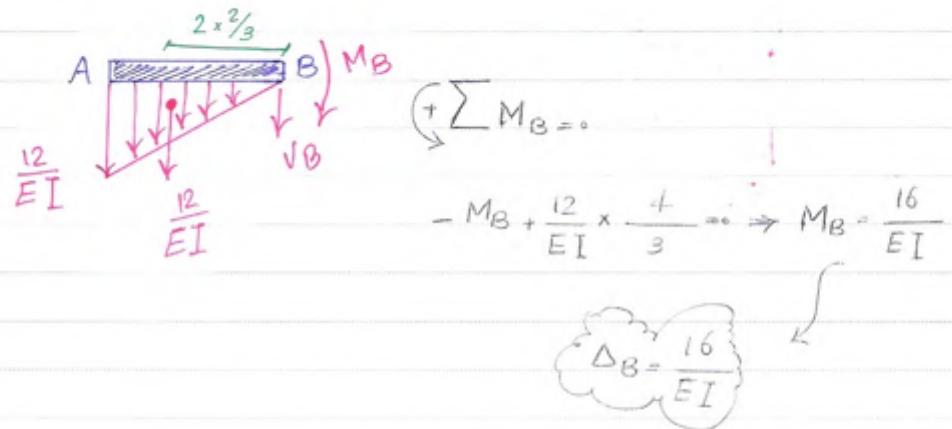 2 × 2/3
A B M_B
(+ ∑ M_B = 0
V_B
12/EI
12/EI
- M_B + 12/EI × 4/3 = 0 ⇒ M_B = 16/EI
Δ_B = 16/EI